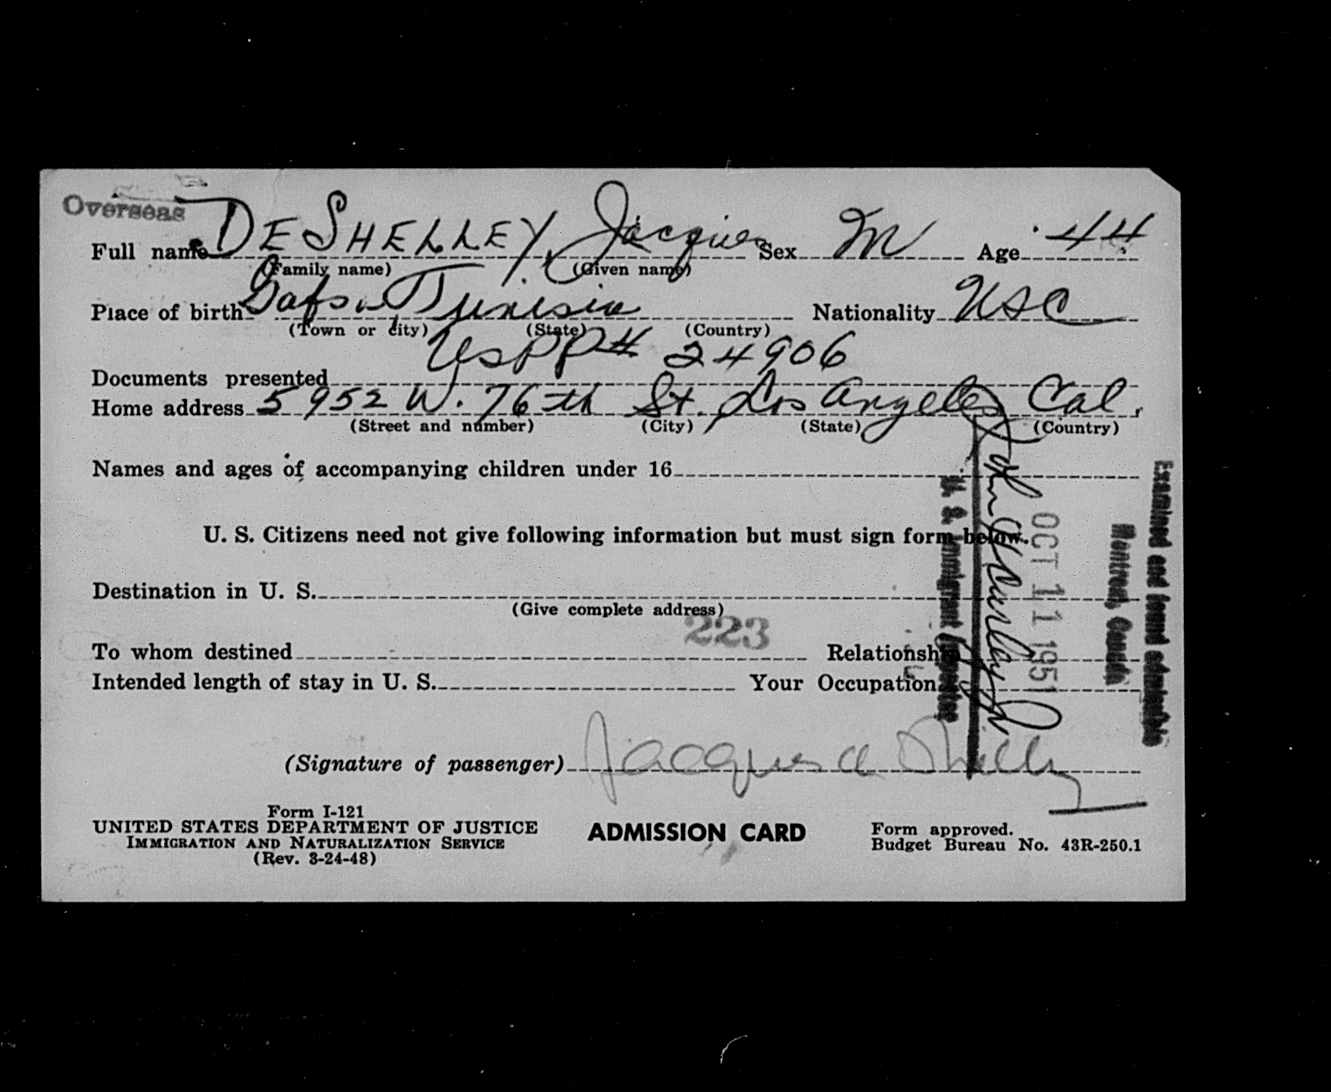 Overseas
Full name DESHELLEY, Jacques Sex M Age 44
(Family name) (Given name)
Place of birth Gafsa Tunisia Nationality USC
(Town or city) (State) (Country)
Documents presented USPP# 24906
Home address 5952 W. 76th St. Los Angeles, Cal.
(Street and number) (City) (State) (Country)
Names and ages of accompanying children under 16
U. S. Citizens need not give following information but must sign form below.
Destination in U. S.
(Give complete address)
223
To whom destined Relationship
Intended length of stay in U. S. Your Occupation
(Signature of passenger) Jacques de Shelly
Form I-121
UNITED STATES DEPARTMENT OF JUSTICE
IMMIGRATION AND NATURALIZATION SERVICE
(Rev. 3-24-48)
ADMISSION CARD
Form approved.
Budget Bureau No. 43R-250.1
Examined and found admissible
Montreal, Canada
OCT 11 1951
U. S. Immigrant Inspector